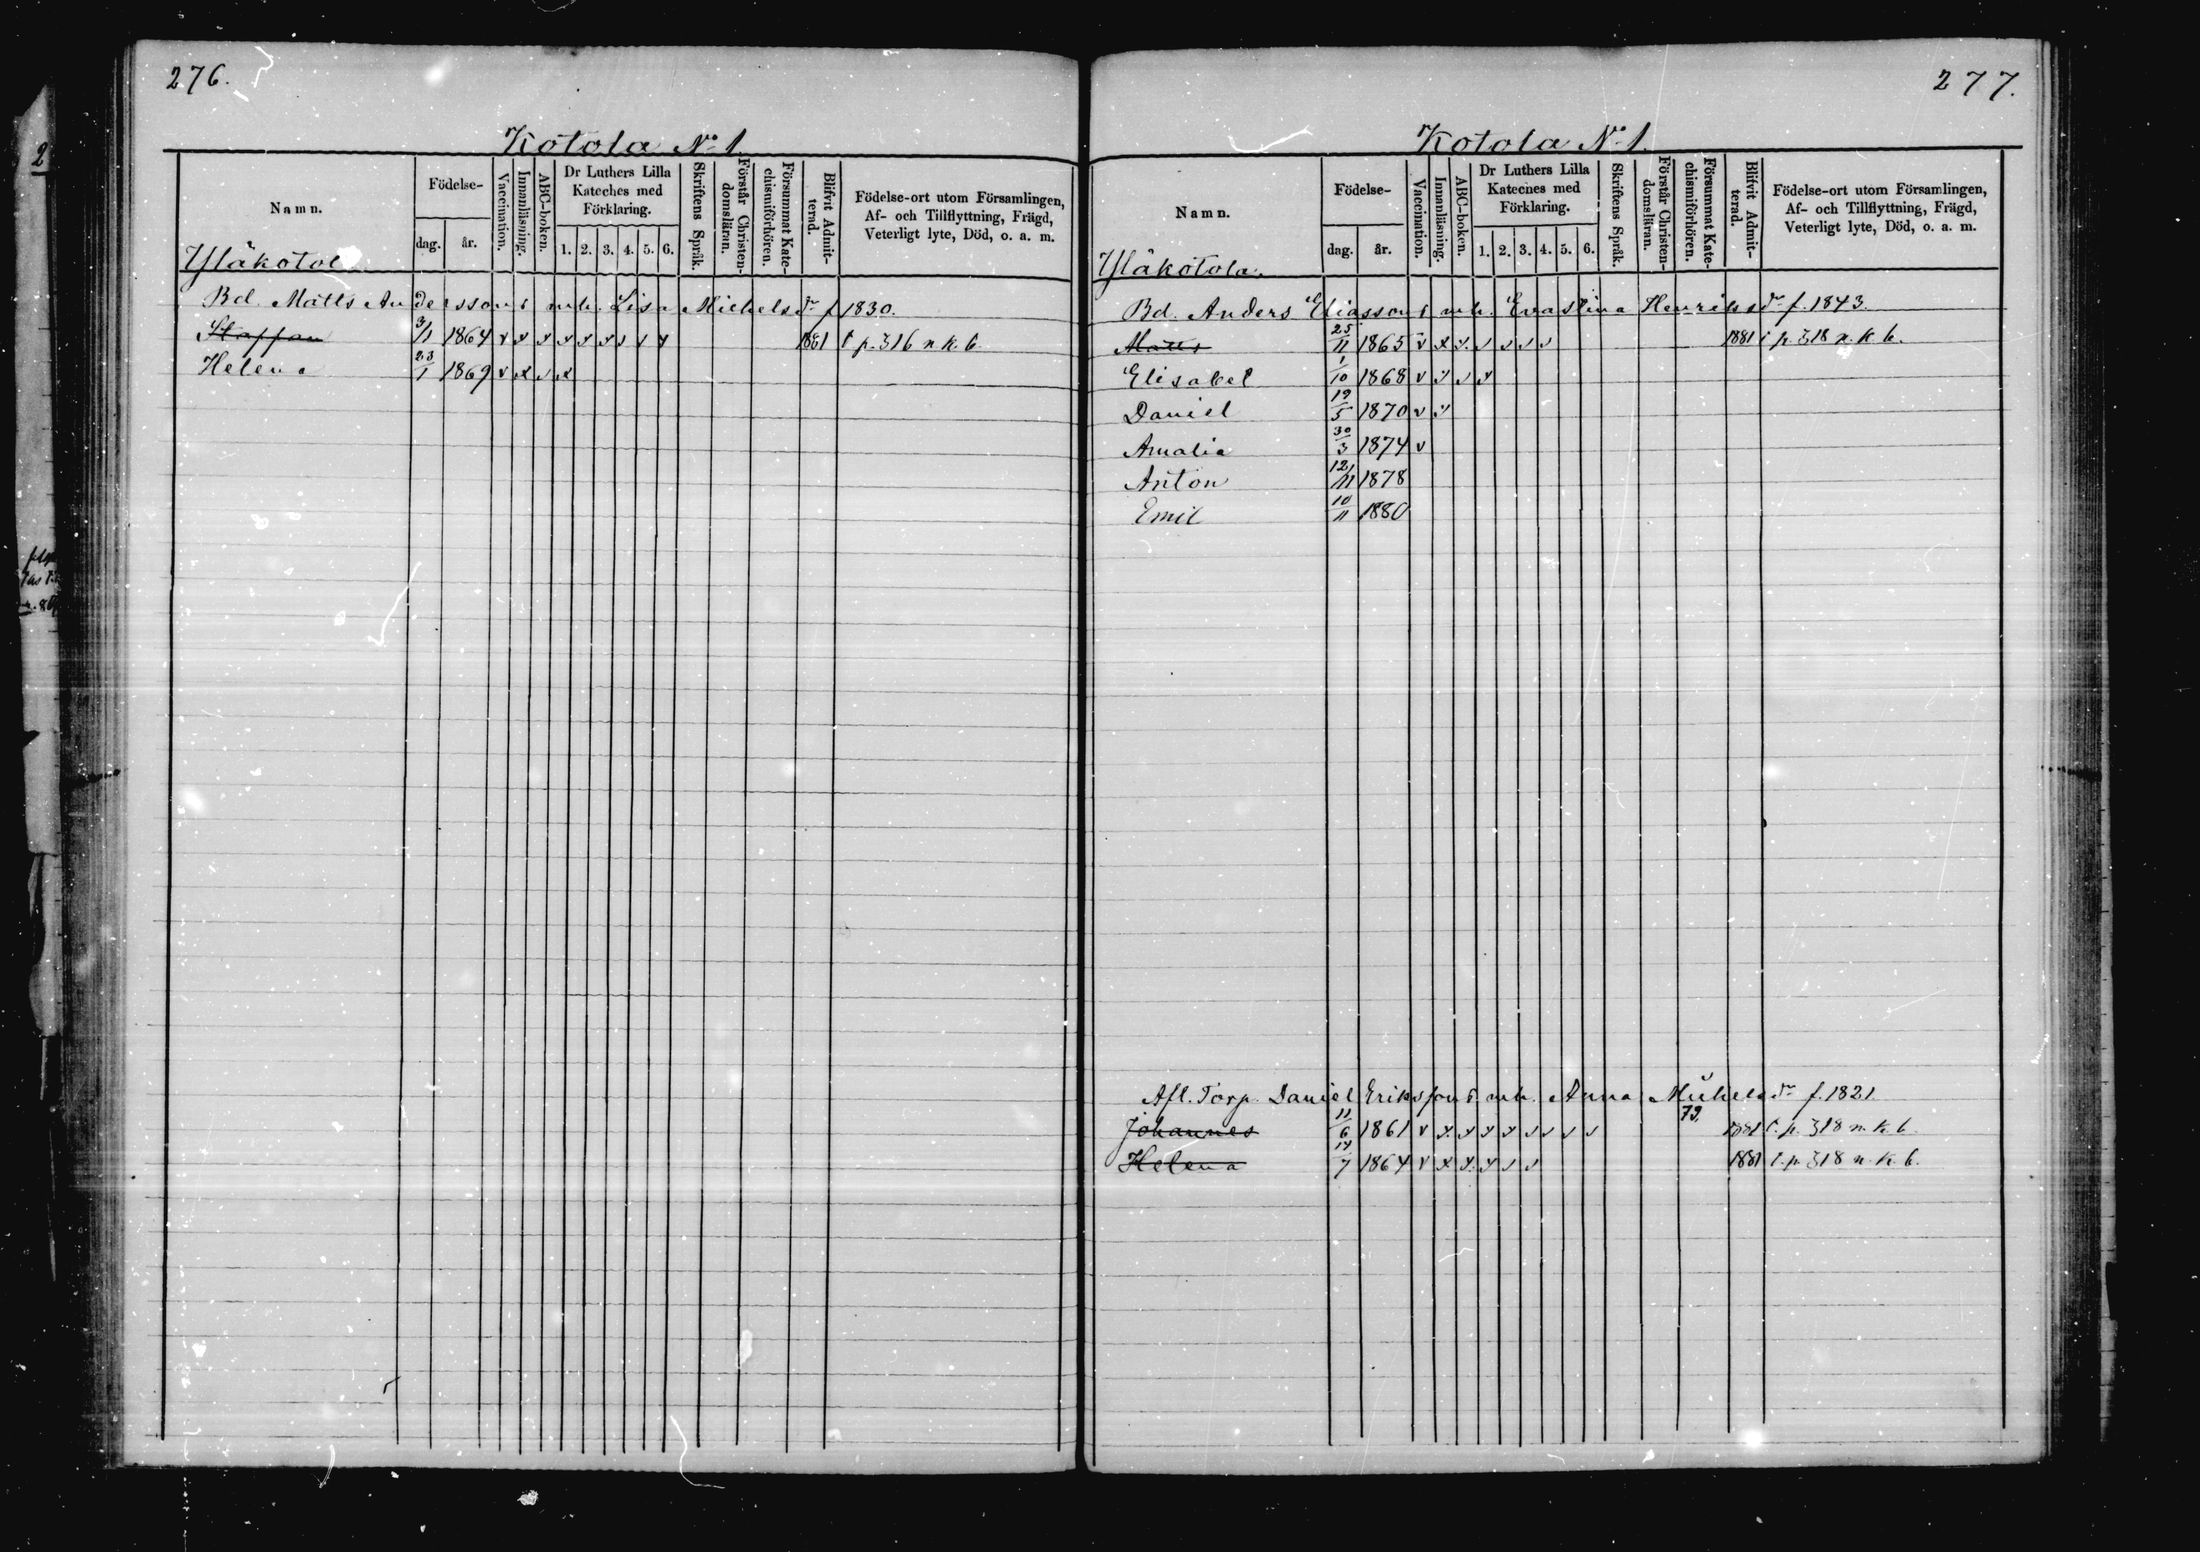 276.
Kotola No 1.
Namn.
Födelse-
dag.
år.
Vaccination.
Innanläsning.
ABC-boken.
Dr Luthers Lilla
Kateches med
Förklaring.
1. 2. 3. 4. 5. 6.
Skriftens Språk.
Förstår Christen-
domsläran.
Försummat Kate-
chismiförhören.
Blifvit Admit-
terad.
Födelse-ort utom Församlingen,
Af- och Tillflyttning, Frägd,
Veterligt lyte, Död, o. a. m.
Yläkotol
Bd. Matts Anderssons o. mh. Lisa Michelsdr f. 1830.
Staffan 3/11 1864 v x x x x x v v x 1881 t p. 316 n k. b.
Helena 23/1 1869 v x v x
277.
Kotola No 1.
Namn.
Födelse-
dag.
år.
Vaccination.
Innanläsning.
ABC-boken.
Dr Luthers Lilla
Kateches med
Förklaring.
1. 2. 3. 4. 5. 6.
Skriftens Språk.
Förstår Christen-
domsläran.
Försummat Kate-
chismiförhören.
Blifvit Admit-
terad.
Födelse-ort utom Församlingen,
Af- och Tillflyttning, Frägd,
Veterligt lyte, Död, o. a. m.
Yläkotola.
Bd. Anders Eliassons o. mh. Eva Stina Henriksdr f. 1843.
Matts 25/11 1865 v x v v v v v 1881 t p. 318 n. k. b.
Elisabet 1/10 1868 v v v x
Daniel 19/5 1870 v v
Amalia 30/3 1874 v
Anton 12/11 1878
Emil 10/11 1880
Afl. Torp. Daniel Erikssons o. mh. Anna Michelsdr f. 1821.
Johannes 11/6 1861 v x x x x v v v v 79. 1881 t. p. 318 n. k. b.
Helena 14/7 1864 v x x x v v 1881 t. p. 318 n. k. b.